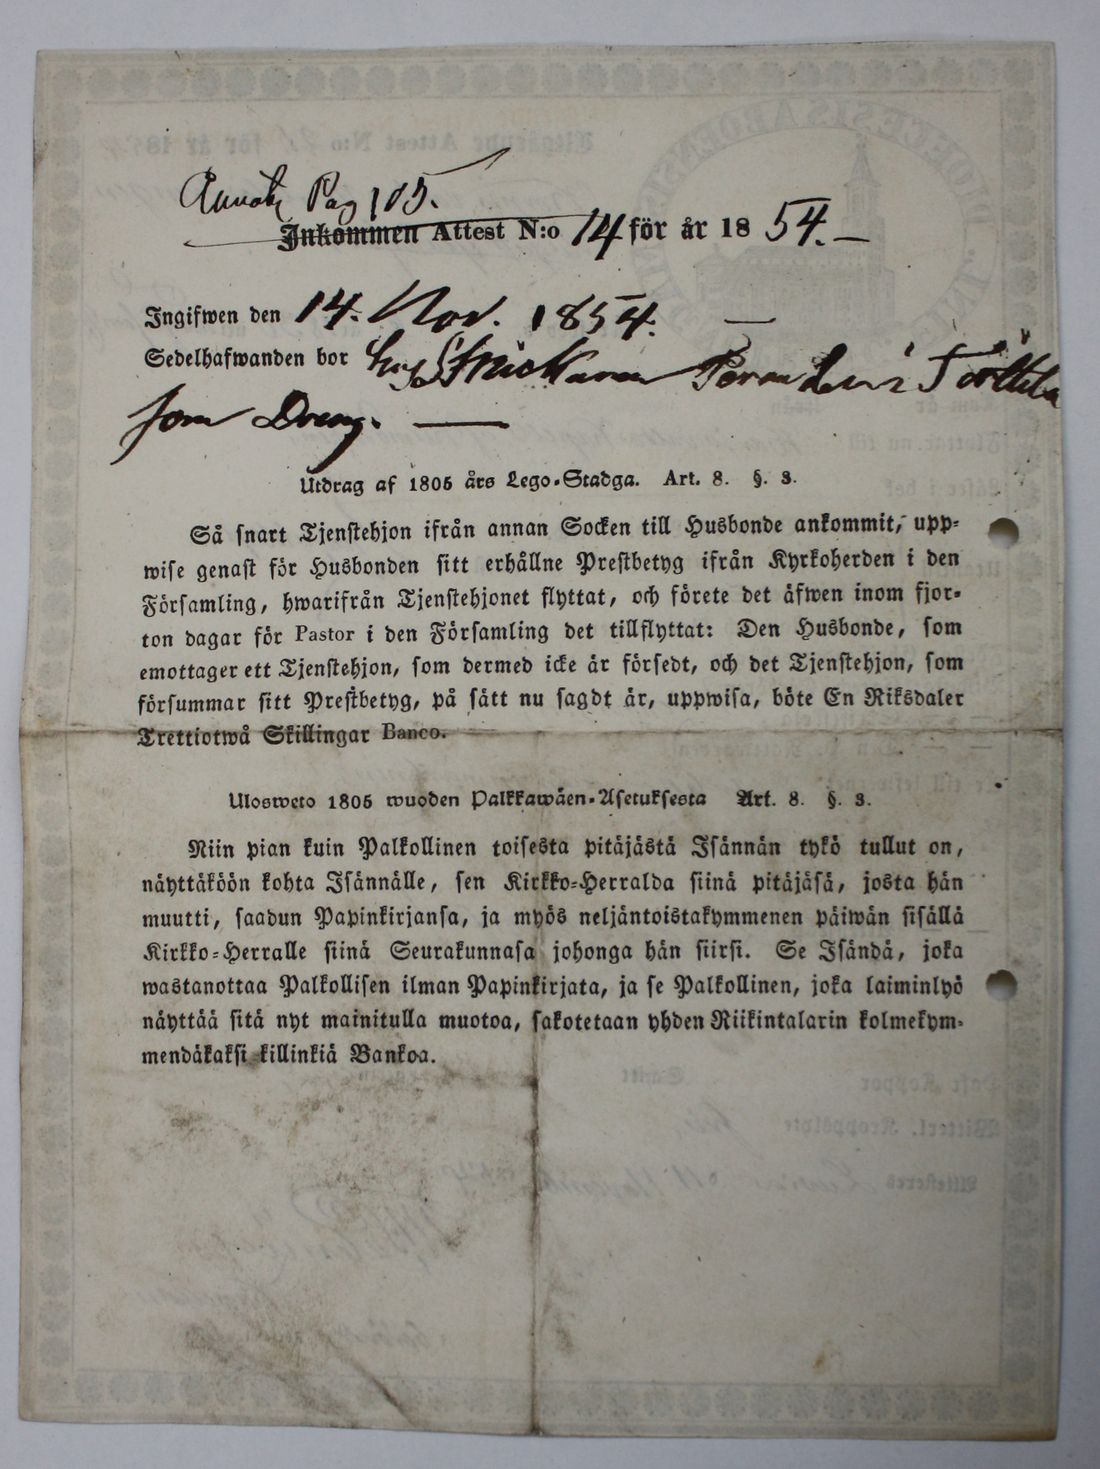 Pag 105.
Inkommen Attest N:o 14 för år 1854.
Ingifwen den 14. Nov. 1854.
Sedelhafwanden bor hos
som Dreng.
Utdrag af 1805 års Lego-Stadga. Art. 8. §. 3.
Så snart Tjenstehjon ifrån annan Socken till Husbonde ankommit, upp-
wise genast för Husbonden sitt erhållne Prestbetyg ifrån Kyrkoherden i den
Församling, hwarifrån Tjenstehjonet flyttat, och förete det äfwen inom fjor-
ton dagar för Pastor i den Församling det tillflyttat: Den Husbonde, som
emottager ett Tjenstehjon, som dermed icke är försedt, och det Tjenstehjon, som
försummar sitt Prestbetyg, på sätt nu sagdt är, uppwisa, böte En Riksdaler
Trettiotwå Skillingar Banco.
Ulosweto 1805 wuoden Palkkawäen-Asetuksesta Art. 8. §. 3.
Niin pian kuin Palkollinen toisesta pitäjästä Isännän tykö tullut on,
näyttäköön kohta Isännälle, sen Kirkko-Herralda siinä pitäjäsä, josta hän
muutti, saadun Papinkirjansa, ja myös neljäntoistakymmenen päiwän sisällä
Kirkko-Herralle siinä Seurakunnasa johonga hän siirsi. Se Isändä, joka
wastanottaa Palkollisen ilman Papinkirjata, ja se Palkollinen, joka laiminlyö
näyttää sitä nyt mainitulla muotoa, sakotetaan yhden Riikintalarin kolmekym-
mendäkaksi killinkiä Bankoa.